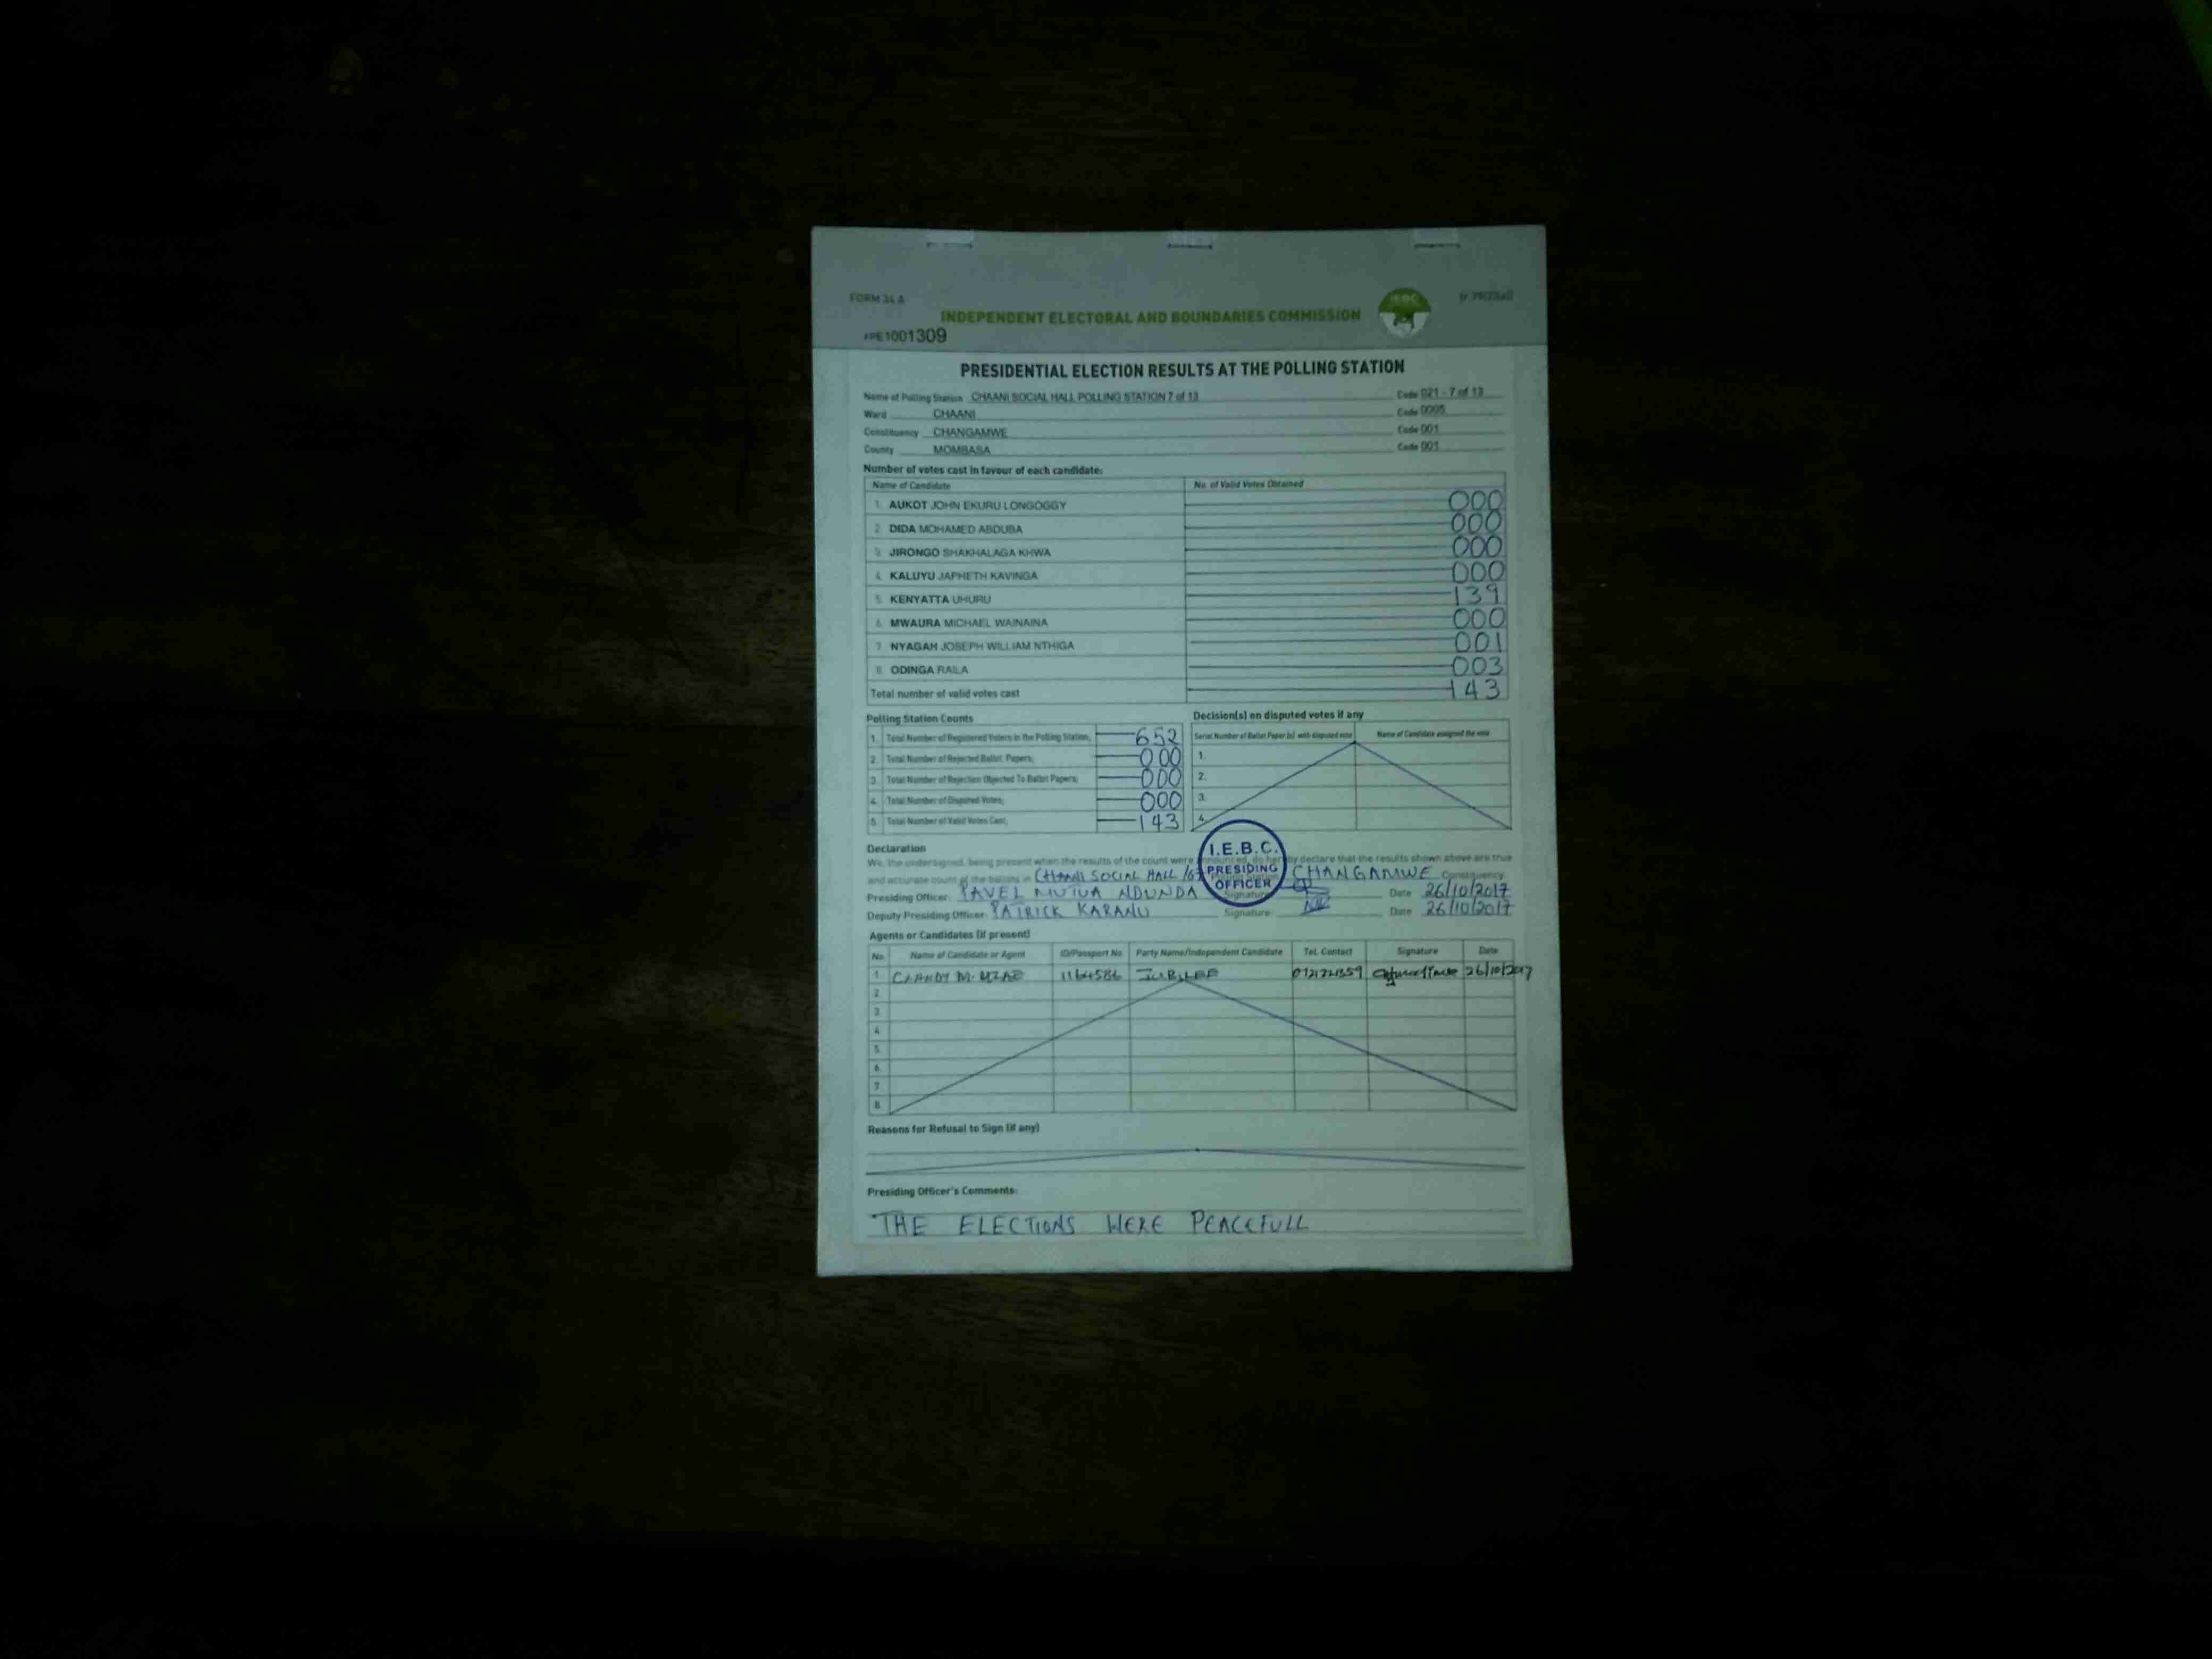 FORM 34 A
INDEPENDENT ELECTORAL AND BOUNDARIES COMMISSION
IEBC
#PE1001309
PRESIDENTIAL ELECTION RESULTS AT THE POLLING STATION
Name of Polling Station CHAANI SOCIAL HALL POLLING STATION 7 of 13 Code 021 - 7 of 13
Ward CHAANI Code 0005
Constituency CHANGAMWE Code 001
County MOMBASA Code 001
Number of votes cast in favour of each candidate:
Name of Candidate No. of Valid Votes Obtained
1. AUKOT JOHN EKURU LONGOGGY 000
2. DIDA MOHAMED ABDUBA 000
3. JIRONGO SHAKHALAGA KHWA 000
4. KALUYU JAPHETH KAVINGA 000
5. KENYATTA UHURU 139
6. MWAURA MICHAEL WAINAINA 000
7. NYAGAH JOSEPH WILLIAM NTHIGA 001
8. ODINGA RAILA 003
Total number of valid votes cast 143
Polling Station Counts
1. Total Number of Registered Voters in the Polling Station; 652
2. Total Number of Rejected Ballot Papers; 000
3. Total Number of Rejection Objected To Ballot Papers; 000
4. Total Number of Disputed Votes; 000
5. Total Number of Valid Votes Cast; 143
Decision(s) on disputed votes if any
Serial Number of Ballot Paper (s) with disputed vote Name of Candidate assigned the vote
1.
2.
3.
4.
Declaration
We, the undersigned, being present when the results of the count were announced, do hereby declare that the results shown above are true
and accurate count of the ballots in CHAANI SOCIAL HALL CHANGAMWE Constituency
I.E.B.C.
PRESIDING
OFFICER
Presiding Officer: PAVEL MUTUA NDUNDA Signature: Date 26/10/2017
Deputy Presiding Officer: PATRICK KARANU Signature: Date 26/10/2017
Agents or Candidates (if present)
No. Name of Candidate or Agent ID/Passport No Party Name/Independent Candidate Tel. Contact Signature Date
1 JUBILEE 26/10/2017
2.
3.
4.
5.
6.
7.
8.
Reasons for Refusal to Sign (if any)
Presiding Officer's Comments:
THE ELECTIONS WERE PEACEFULL